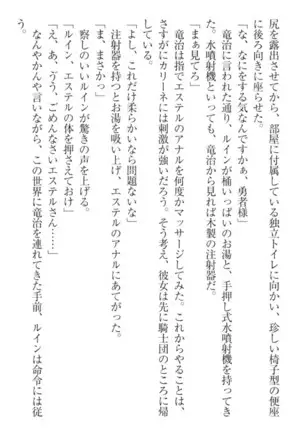 尻を露出させてから、部屋に付属している独立トイレに向かい、珍しい椅子型の便座
に後ろ向きに座らせた。
「な、なにをする気なんですかぁ、勇者様」
竜治に言われた通り、ルインが桶いっぱいのお湯と、手押し式水噴射機を持ってき
た。水噴射機といっても、竜治から見れば木製の注射器だ。
「まぁ見てろ」
竜治は指でエステルのアナルを何度かマッサージしてみた。これからやることは、
さすがにカリーネには刺激が強いだろう。そう考え、彼女は先に騎士団のところに帰
している。
「よし、これだけ柔らかいなら問題ないな」
注射器を持つとお湯を吸い上げ、エステルのアナルにあてがった。
「ま、まさかっ」
察しのいいルインが驚きの声を上げる。
「ルイン、エステルの体を押さえておけ」
「え、あ、うう、ごめんなさいエステルさん……」
なんやかんや言いながら、この世界に竜治を連れてきた手前、ルインは命令には従